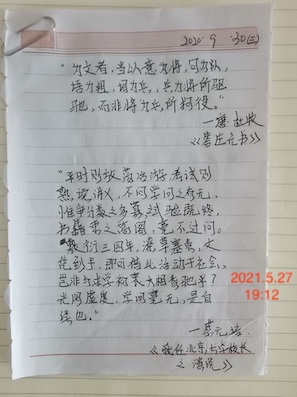 2020. 9. 30(三)
“为文者,当以意为将,句为队,
为粗,词为兵,,兵为将所驱
驰,而非将为兵所掎役。”
—唐 杜牧
《答庄充书》
“平时则放荡冶游,考试则
熟读讲义,不问学问之有无,
惟争分数之多寡,试验既终,
书籍束之高阁,毫不过问。
敷衍三四年,潦草塞责,文
凭到手,即可借此活动于社会,
岂非与求学初衷大相背驰乎?
光阴虚度,学问毫无,是自
误也。”
—蔡元培
《就任北京大学校长
之演说》
2021.5.27
19:12